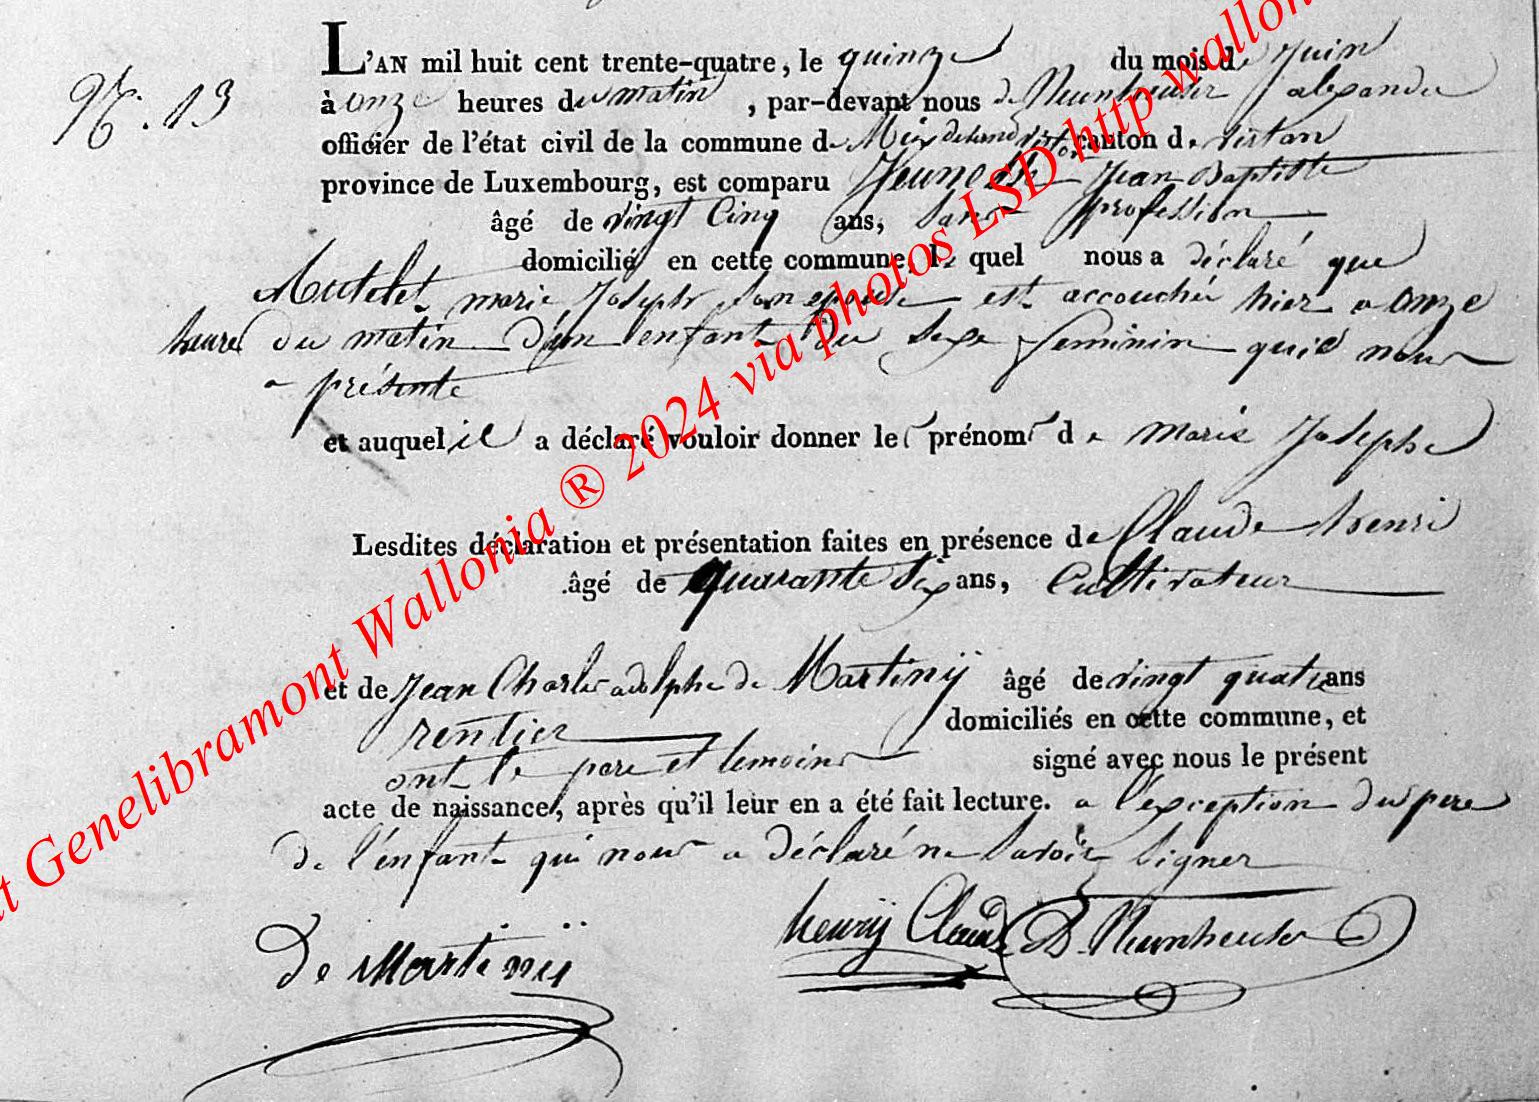 N°. 13
L'AN mil huit cent trente-quatre, le quinze du mois de Juin
à onze heures du matin, par-devant nous de Neunheuser alexandre
officier de l'état civil de la commune de Meix devant virton canton de virton
province de Luxembourg, est comparu Jean Baptiste
âgé de vingt Cinq ans, sans profession
domicilié en cette commune, le quel nous a déclaré que
Mutelet marie Joseph Son epouse est accouchée hier a onze
heures du matin d'un enfant du Sexe feminin qu'il nous
a présenté
et auquel il a déclaré vouloir donner les prénoms de marie Josephe
Lesdites déclaration et présentation faites en présence de Claude henri
âgé de quarante Six ans, Cultivateur
et de Jean Charles adolphe de Martinÿ âgé de vingt quatre ans
rentier domiciliés en cette commune, et
ont le pere et temoins signé avec nous le présent
acte de naissance, après qu'il leur en a été fait lecture. a l'exception du pere
de l'enfant qui nous a déclaré ne Savoir Signer
de Martinÿ henrÿ Claude D. Neunheuser
Genelibramont Wallonia ® 2024 via photos LSD http wallon